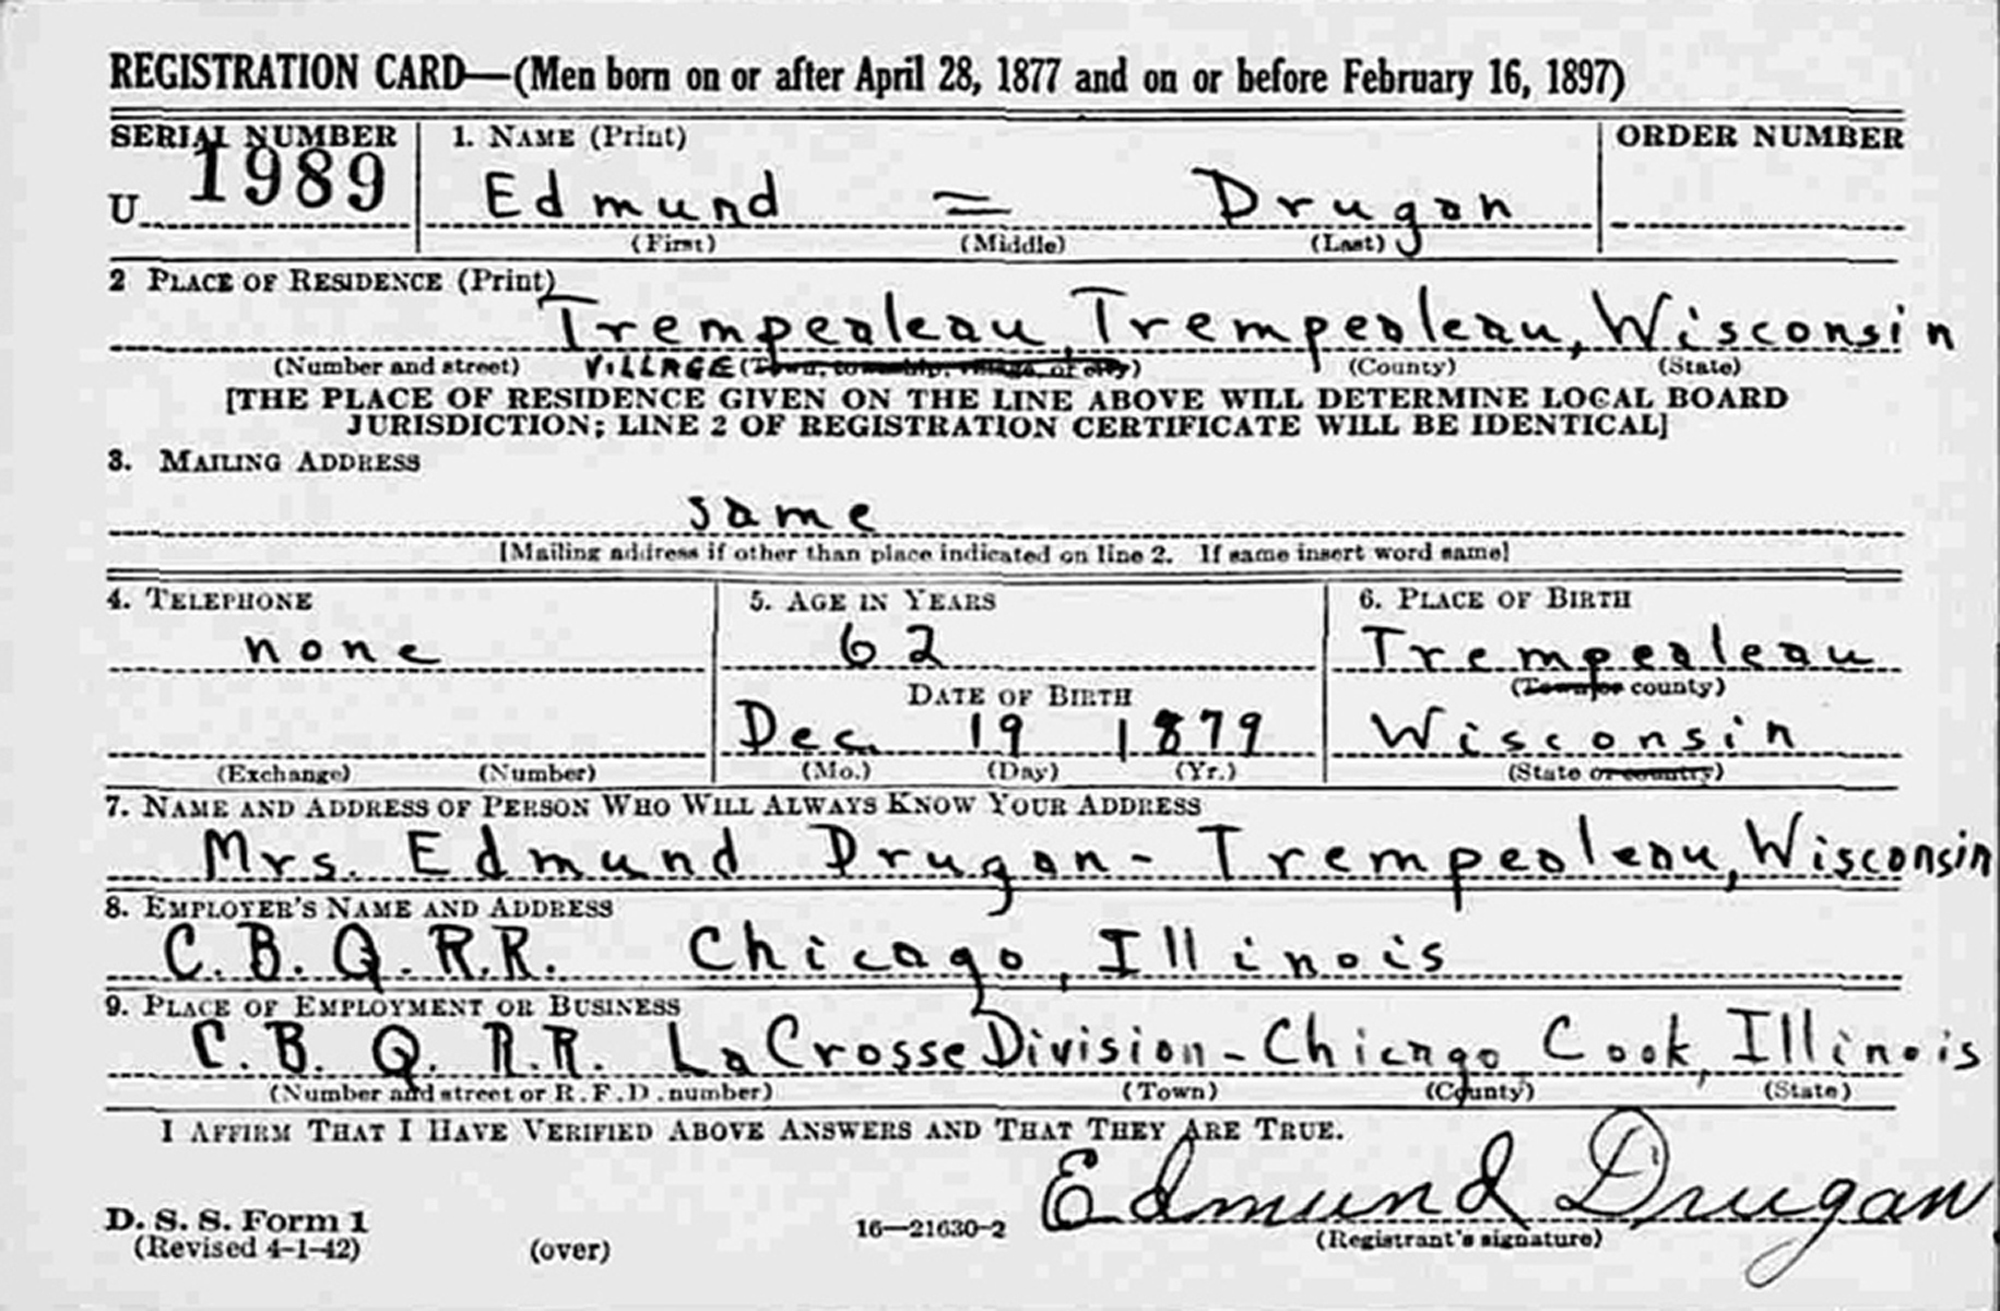 REGISTRATION CARD—(Men born on or after April 28, 1877 and on or before February 16, 1897)
SERIAL NUMBER 1. NAME (Print) ORDER NUMBER
U 1989 Edmund = Drugan
(First) (Middle) (Last)
2 PLACE OF RESIDENCE (Print)
Trempealeau, Trempealeau, Wisconsin
(Number and street) VILLAGE (Town, township, village, or city) (County) (State)
[THE PLACE OF RESIDENCE GIVEN ON THE LINE ABOVE WILL DETERMINE LOCAL BOARD
JURISDICTION; LINE 2 OF REGISTRATION CERTIFICATE WILL BE IDENTICAL]
3. MAILING ADDRESS
same
[Mailing address if other than place indicated on line 2. If same insert word same]
4. TELEPHONE 5. AGE IN YEARS 6. PLACE OF BIRTH
none 62 Trempealeau
DATE OF BIRTH (Town or county)
Dec. 19 1879 Wisconsin
(Exchange) (Number) (Mo.) (Day) (Yr.) (State or country)
7. NAME AND ADDRESS OF PERSON WHO WILL ALWAYS KNOW YOUR ADDRESS
Mrs. Edmund Drugan - Trempealeau, Wisconsin
8. EMPLOYER'S NAME AND ADDRESS
C. B. Q. R.R. Chicago, Illinois
9. PLACE OF EMPLOYMENT OR BUSINESS
C. B. Q. R.R. LaCrosse Division - Chicago, Cook, Illinois
(Number and street or R. F. D. number) (Town) (County) (State)
I AFFIRM THAT I HAVE VERIFIED ABOVE ANSWERS AND THAT THEY ARE TRUE.
Edmund Drugan
D. S. S. Form 1
(Revised 4-1-42) (over) 16—21630-2 (Registrant's signature)